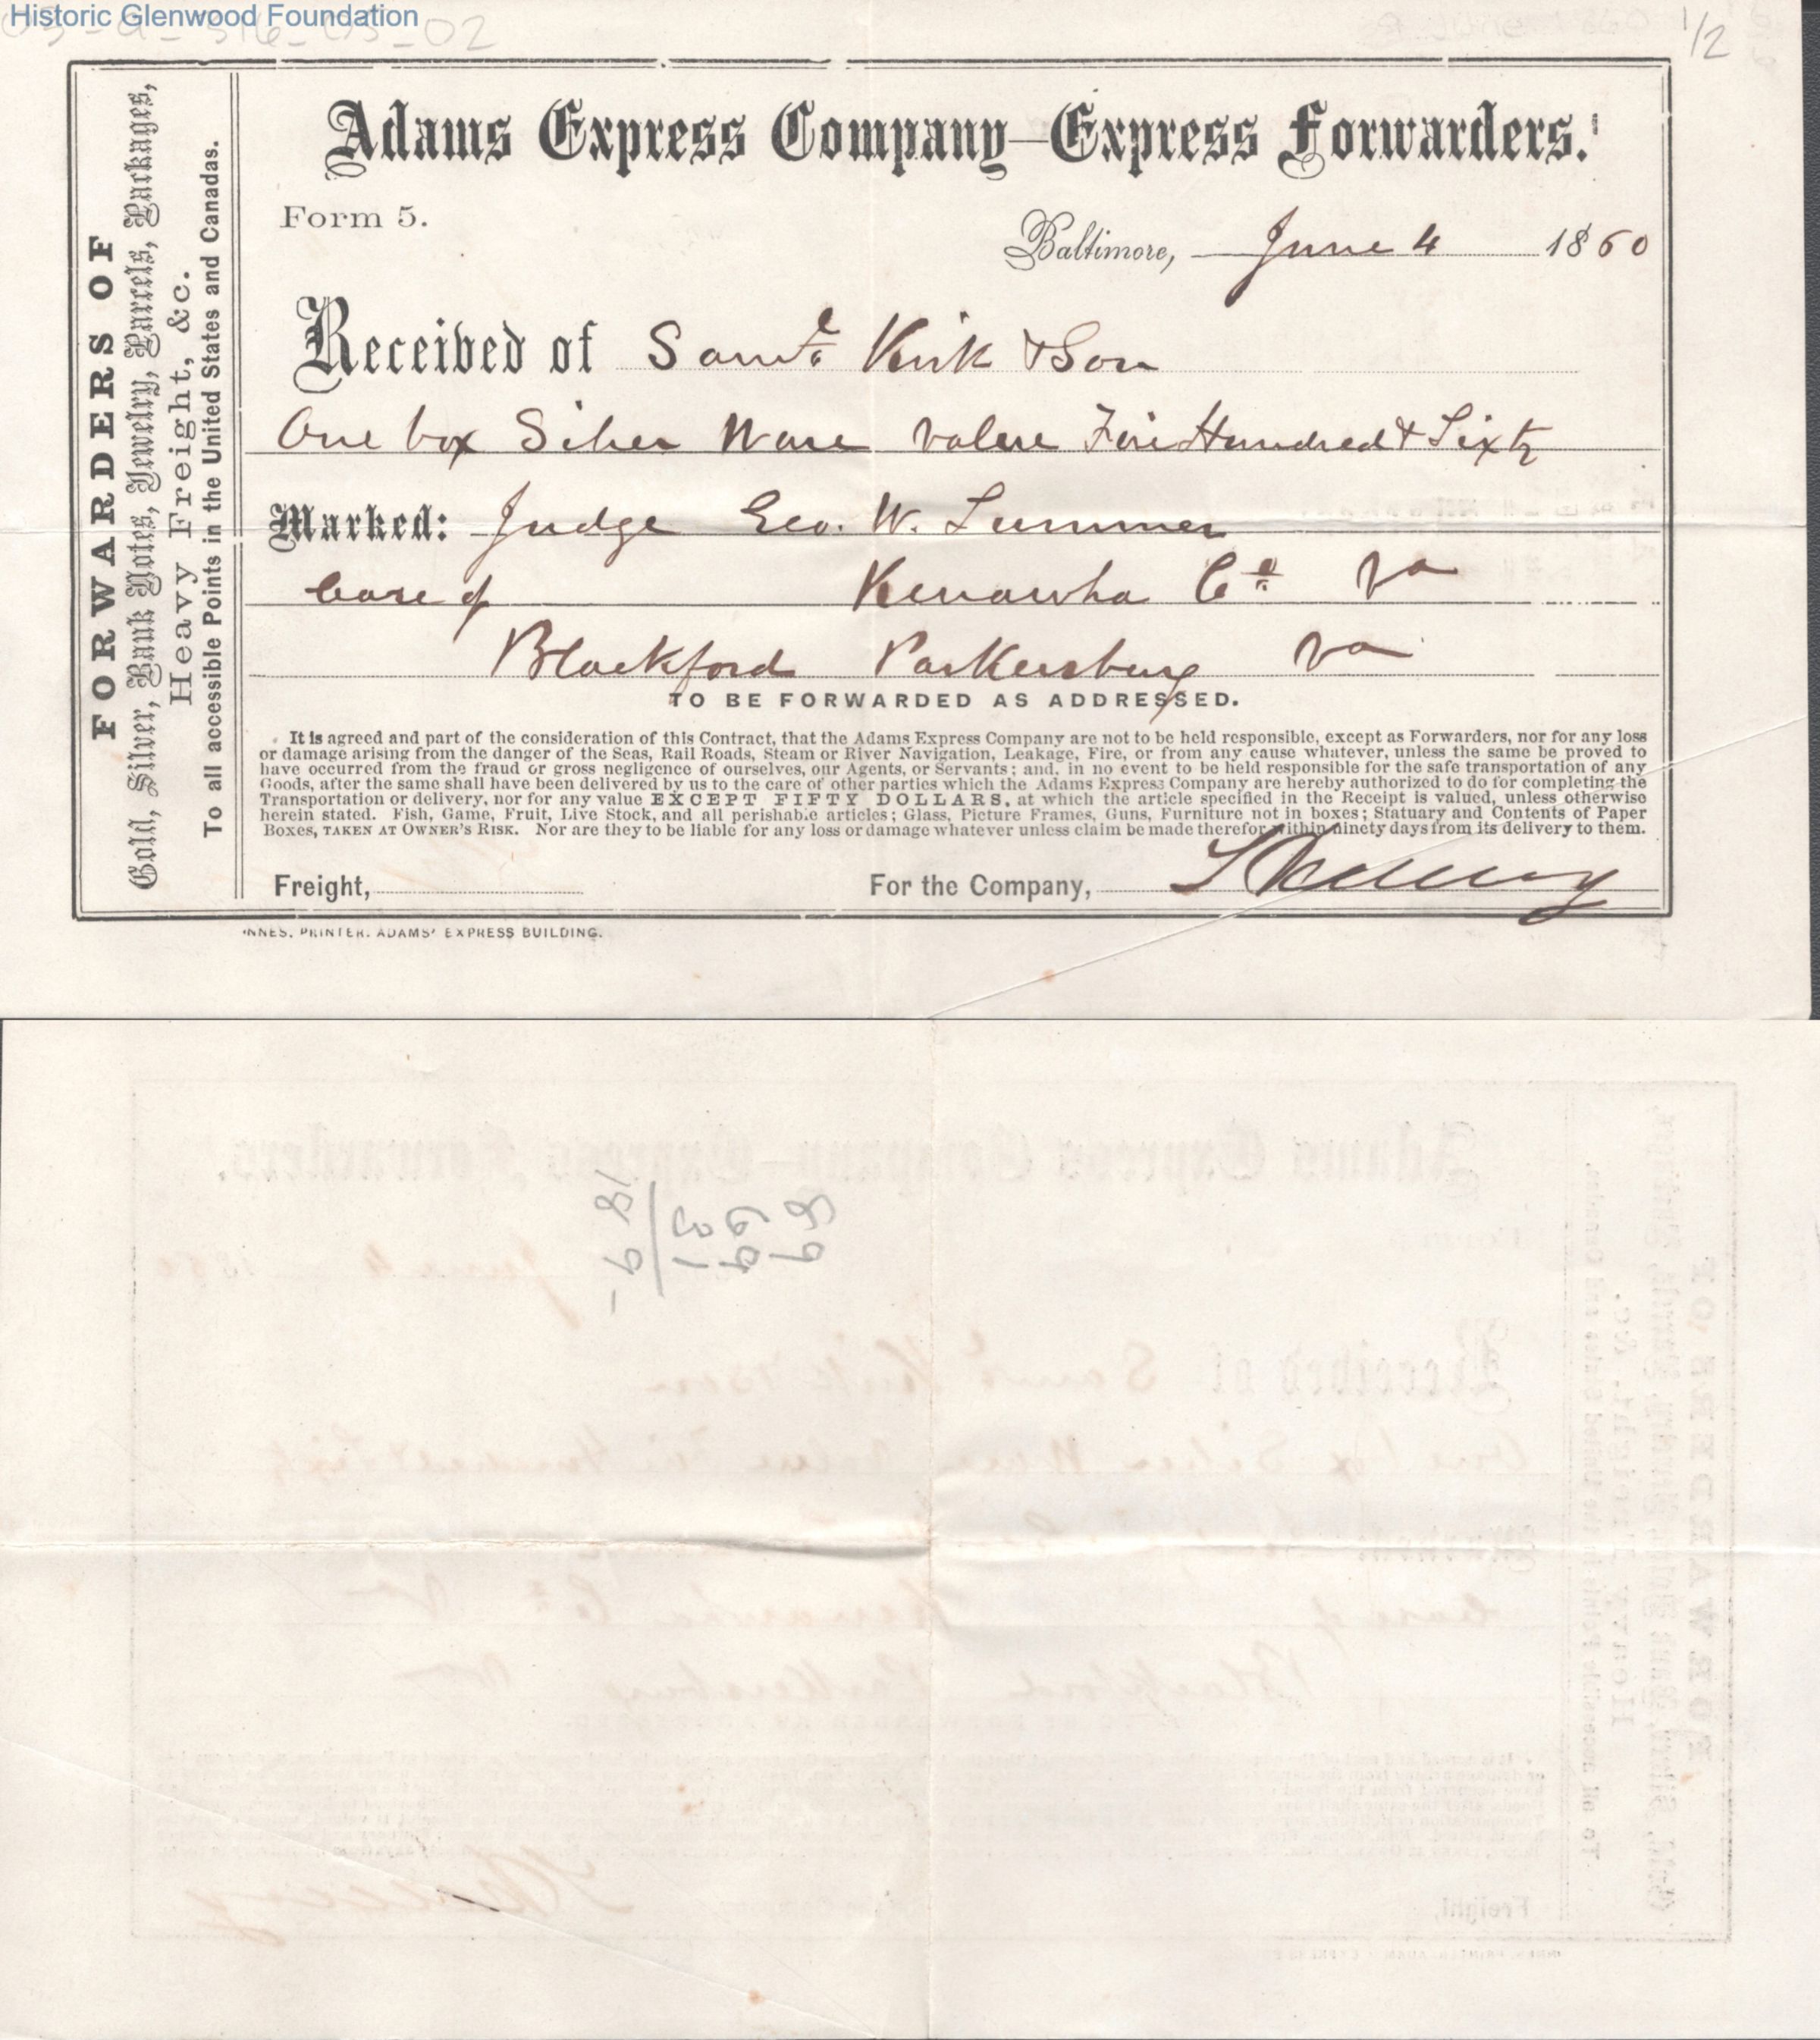 Historic Glenwood Foundation
1/2
FORWARDERS OF
Gold, Silver, Bank Notes, Jewelry, Parcels, Packages,
Heavy Freight, &c.
To all accessible Points in the United States and Canadas.
Adams Express Company—Express Forwarders.
Form 5.
Baltimore, June 4 1860
Received of Saml Kirk & Son
One box Silver Ware value Five Hundred & Sixty
Marked: Judge Geo. W. Summer
Care of Kenawha Co Va
Blackford Parkersburg Va
TO BE FORWARDED AS ADDRESSED.
It is agreed and part of the consideration of this Contract, that the Adams Express Company are not to be held responsible, except as Forwarders, nor for any loss
or damage arising from the danger of the Seas, Rail Roads, Steam or River Navigation, Leakage, Fire, or from any cause whatever, unless the same be proved to
have occurred from the fraud or gross negligence of ourselves, our Agents, or Servants; and, in no event to be held responsible for the safe transportation of any
Goods, after the same shall have been delivered by us to the care of other parties which the Adams Express Company are hereby authorized to do for completing the
Transportation or delivery, nor for any value EXCEPT FIFTY DOLLARS, at which the article specified in the Receipt is valued, unless otherwise
herein stated. Fish, Game, Fruit, Live Stock, and all perishable articles; Glass, Picture Frames, Guns, Furniture not in boxes; Statuary and Contents of Paper
Boxes, TAKEN AT OWNER'S RISK. Nor are they to be liable for any loss or damage whatever unless claim be made therefor within ninety days from its delivery to them.
Freight,
For the Company,
INNES, PRINTER, ADAMS' EXPRESS BUILDING.